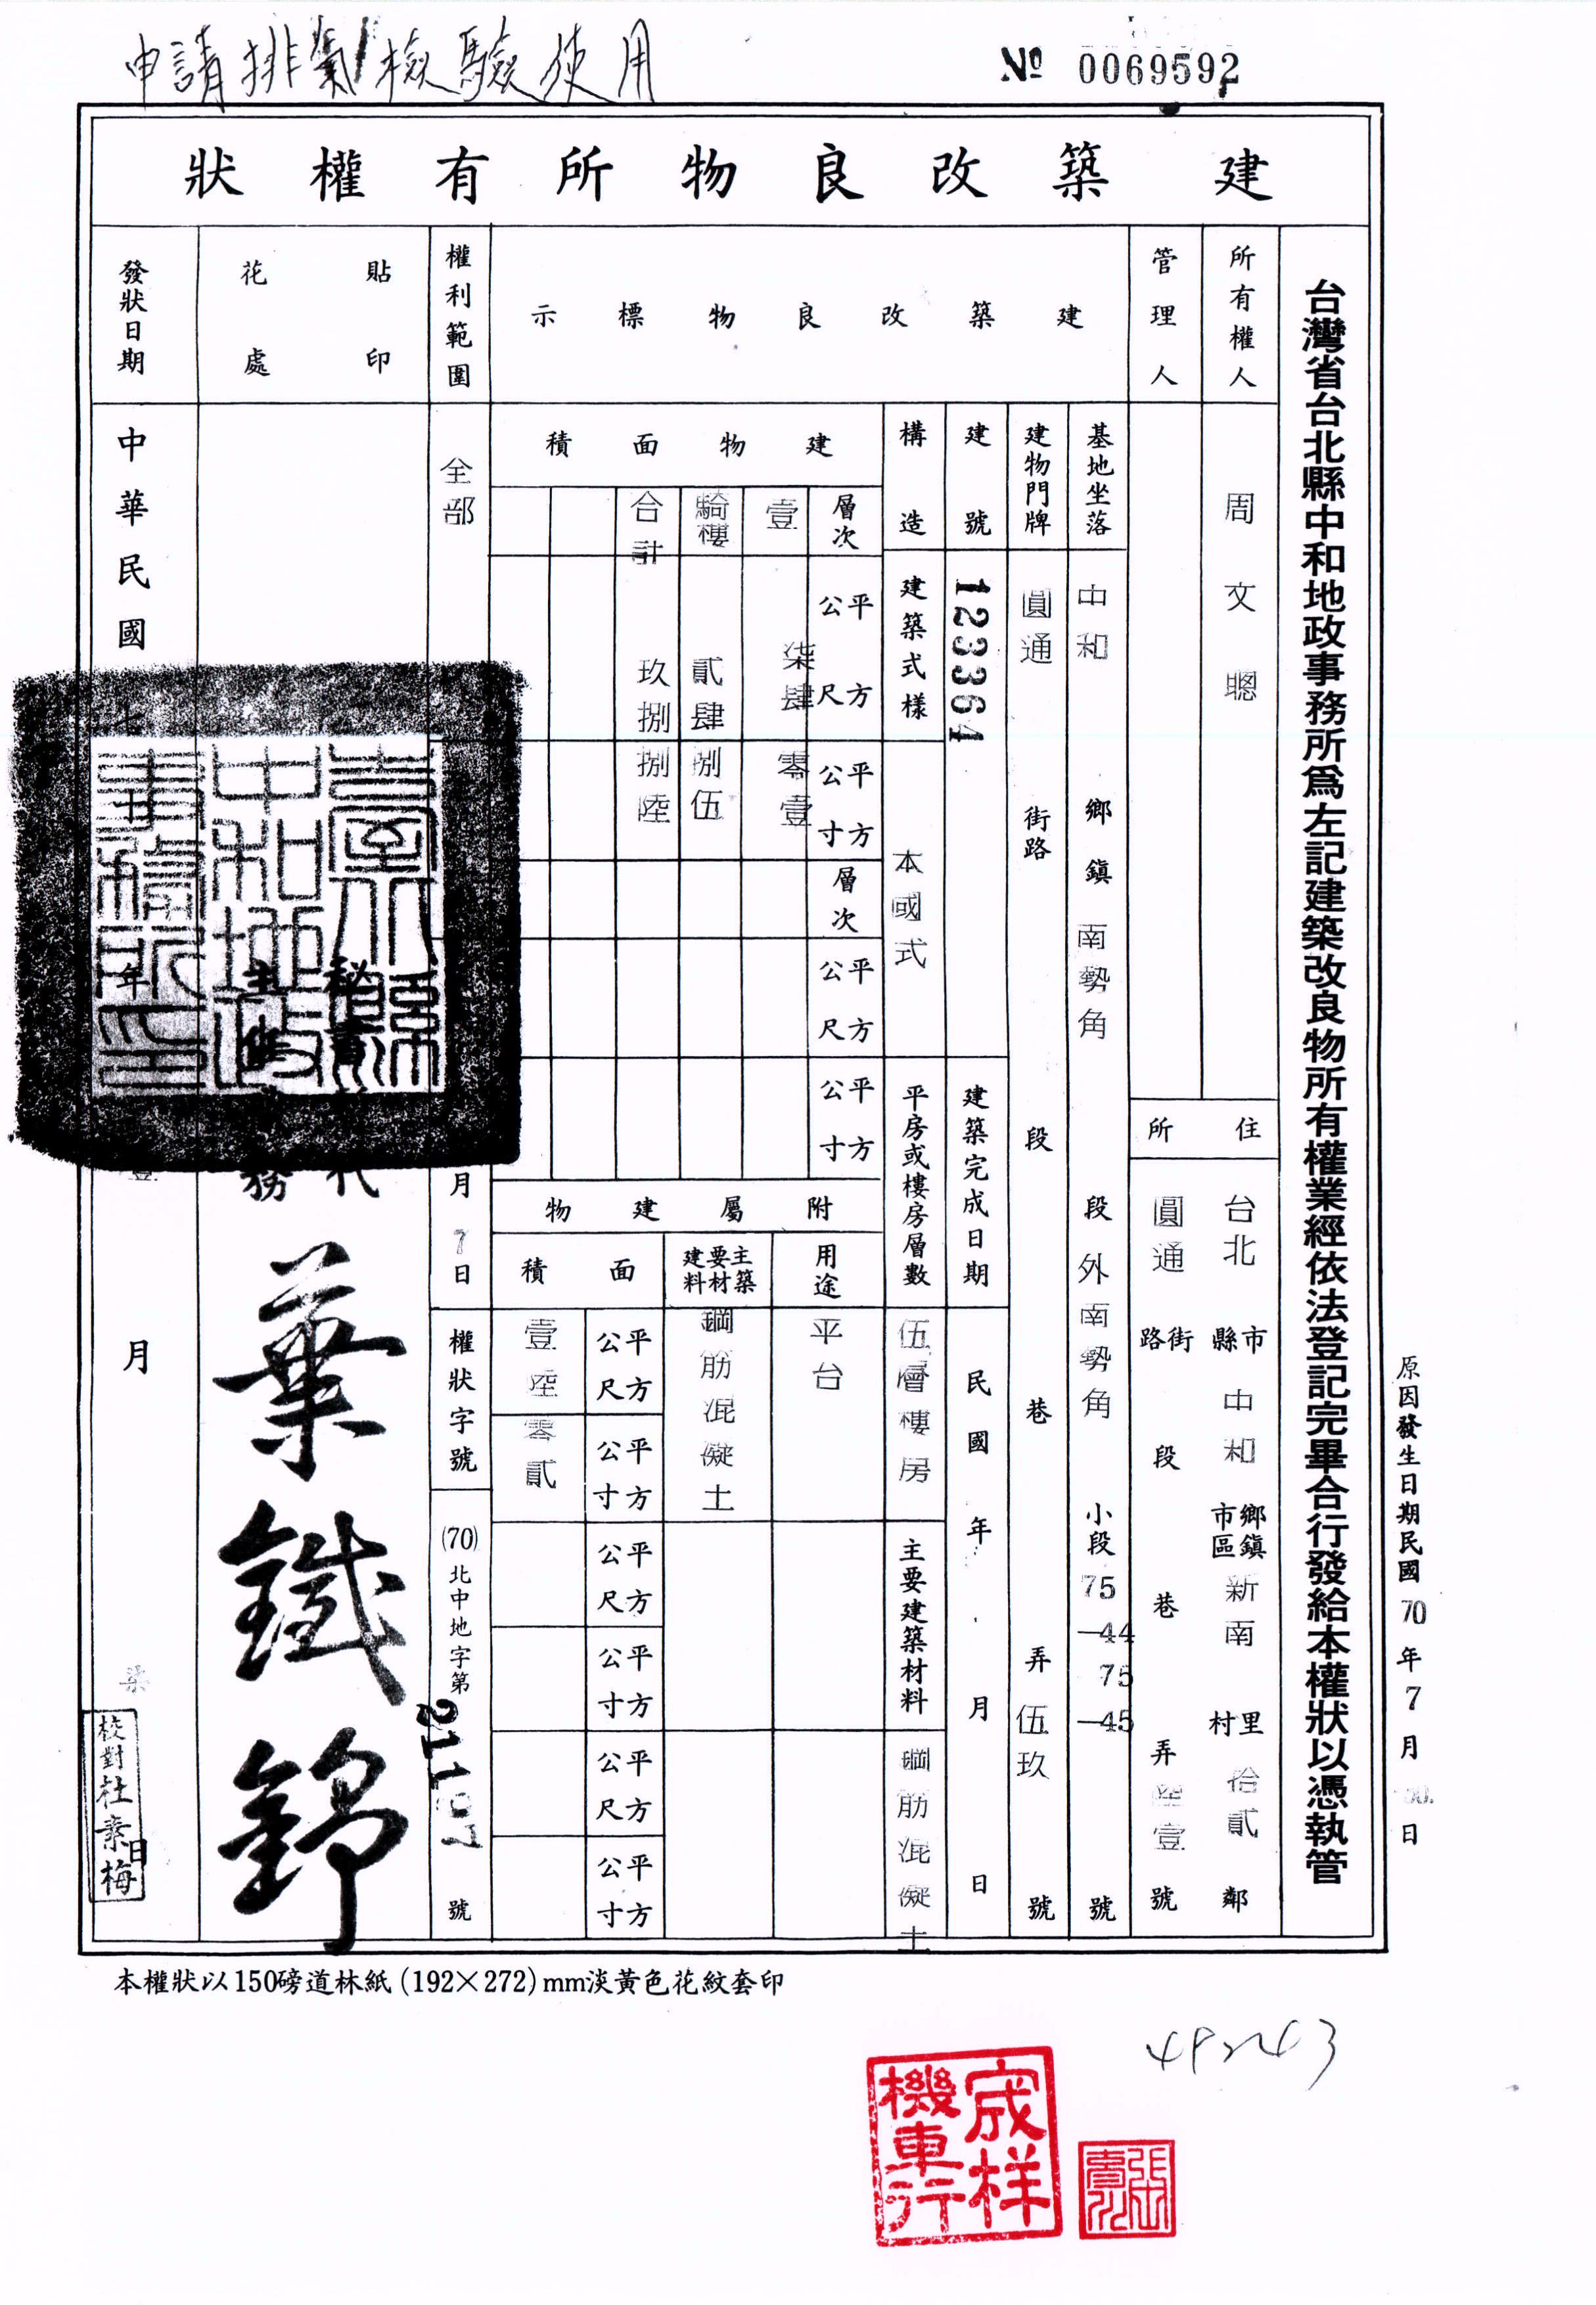 申請排氣檢驗使用
№ 0069592
建築改良物所有權狀
台灣省台北縣中和地政事務所為左記建築改良物所有權業經依法登記完畢合行發給本權狀以憑執管
原因發生日期民國70年7月 日
所有權人
周文聰
住所
台北市縣中和鄉鎮市區新南里村拾貳鄰
圓通街路段巷弄陸壹號
管理人
建築改良物標示
基地坐落
中和鄉鎮南勢角段外南勢角小段75—44 75—45號
建物門牌
圓通街路段巷弄伍玖號
建號
123364
建築完成日期
民國年月日
構造
建築式樣
本國式
平房或樓房層數
伍層樓房
主要建築材料
鋼筋混凝土
建物面積
層次 平方公尺 平方公寸 層次 平方公尺 平方公寸
壹 柒肆 零壹
騎樓 貳肆 捌伍
合計 玖捌 捌陸
附屬建物
用途
平台
主要建築材料
鋼筋混凝土
面積
平方公尺 平方公寸 平方公尺 平方公寸 平方公尺 平方公寸
壹陸 零貳
權利範圍
全部
月7日
權狀字號
(70)北中地字第21107號
貼印花處
葉鐵錚
發狀日期
中華民國七 年 月 柒 日
校對杜素梅
本權狀以150磅道林紙(192×272)mm淡黃色花紋套印
49243
宬祥機車行